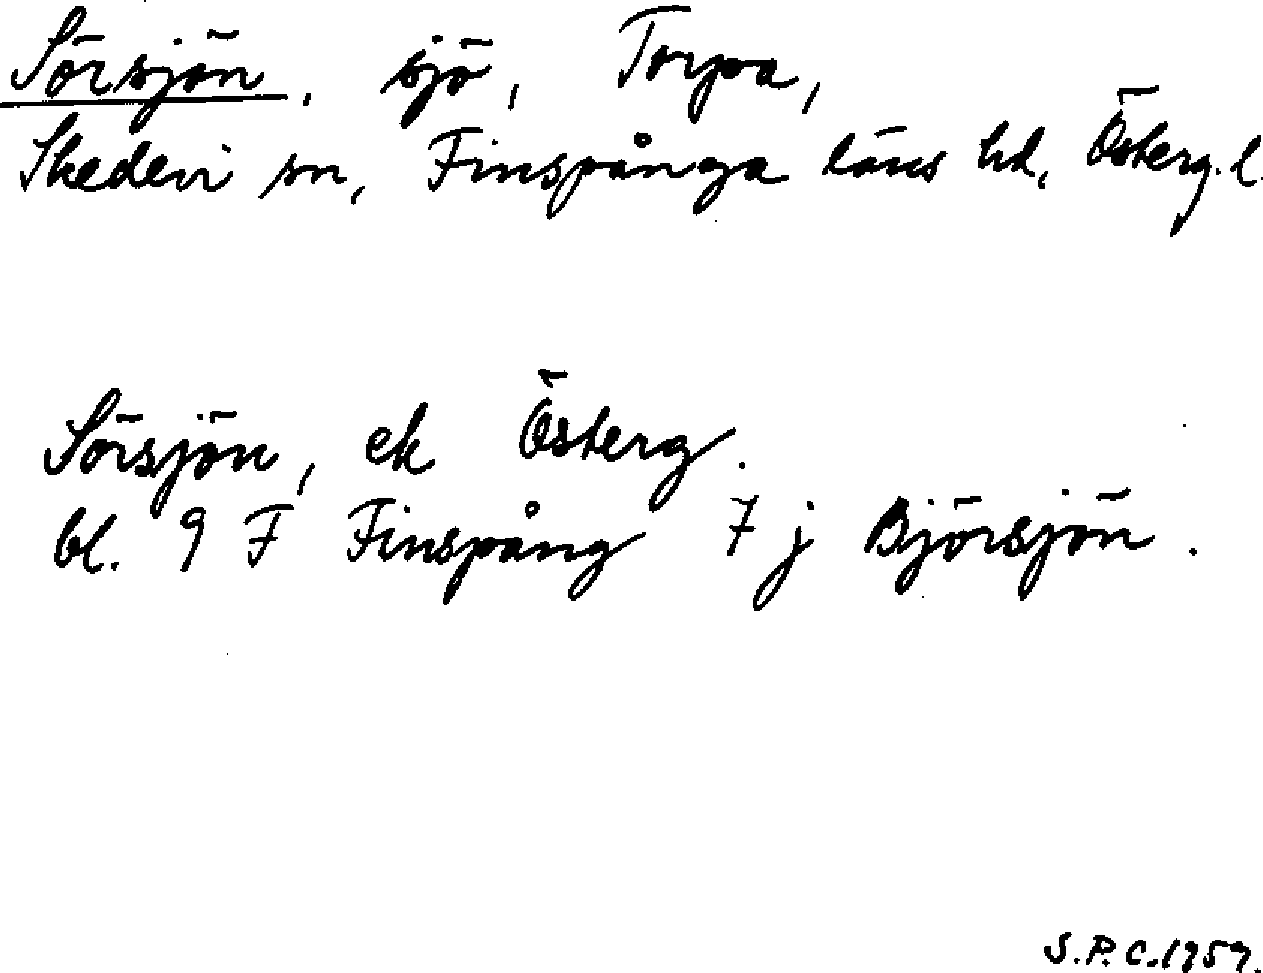 Sörsjön, sjö, Torpa,
Skedevi sn, Finspånga läns hd, Österg. l.
Sörsjön, ek Österg.
bl. 9 F Finspång 7 j Björsjön.
S.P.C. 1959.